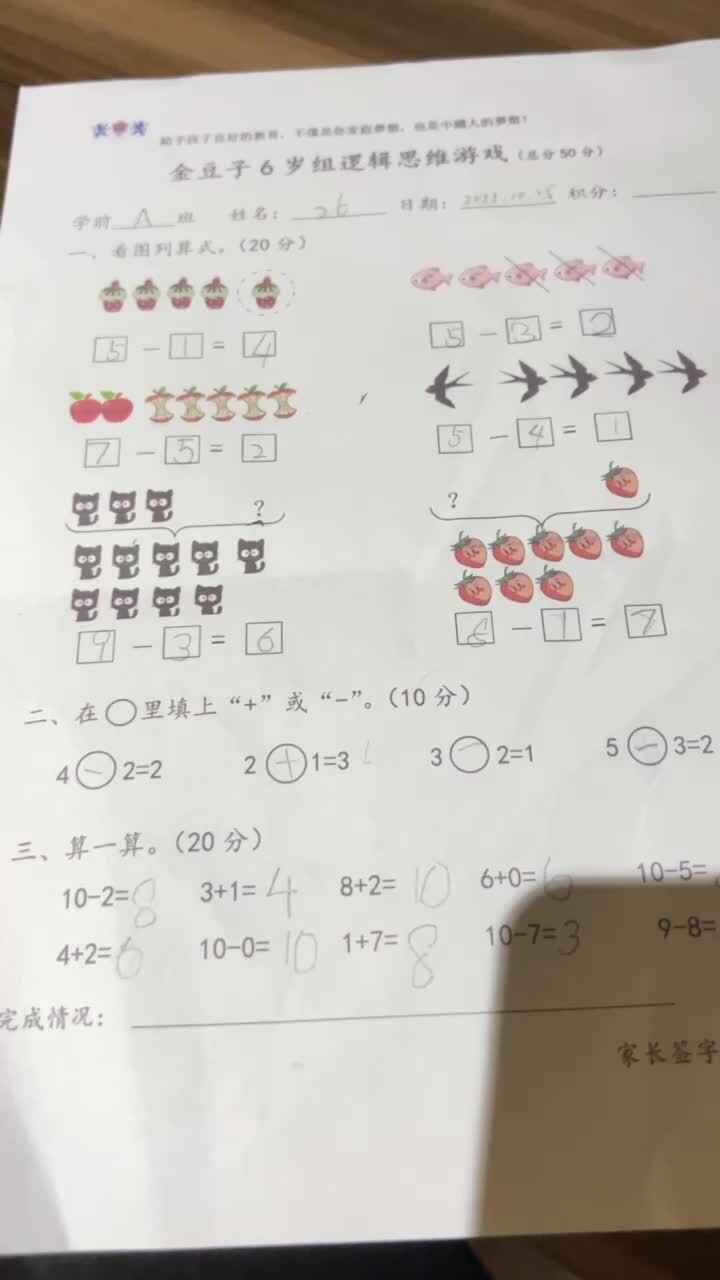 给予孩子良好的教育，不仅是你家庭梦想，也是中国人的梦想！
金豆子6岁组逻辑思维游戏（总分50分）
学前 A 班 姓名： 26 日期： 积分：
一、看图列算式。（20分）
5 - 1 = 4
5 - 3 = 2
7 - 5 = 2
5 - 4 = 1
?
?
9 - 3 = 6
- 1 = 7
二、在○里填上“+”或“-”。（10分）
4-2=2 2+1=3 3-2=1 5-3=2
三、算一算。（20分）
10-2=8 3+1=4 8+2=10 6+0=6 10-5=
4+2=6 10-0=10 1+7=8 10-7=3 9-8=
完成情况：
家长签字